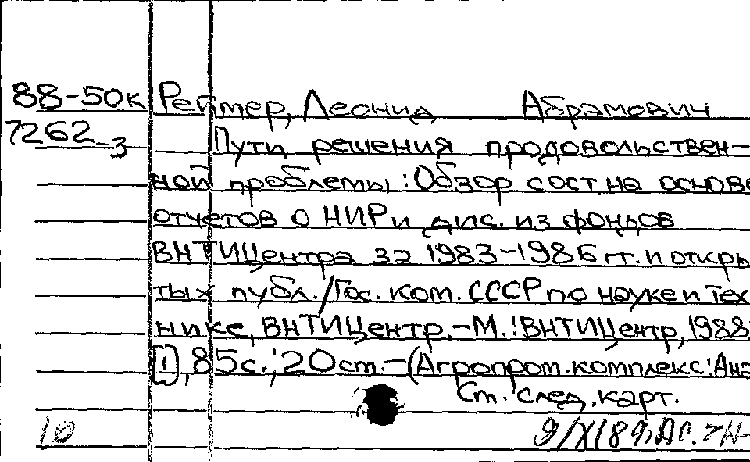 88-50к Реймер, Леонид Абрамович
7262 3 Пути решения продовольствен-
ной проблемы: Обзор сост. на основе
отчетов о НИР и дис. из фондов
ВНТИЦентра за 1983-1986 гг. и откры
тых публ./Гос. ком. СССР по науке и тех
нике, ВНТИЦентр.-М.:ВНТИЦентр,1988
[1], 85с.; 20см.-(Агропром. комплекс: Ана
См. след. карт.
10 9/XI 89,